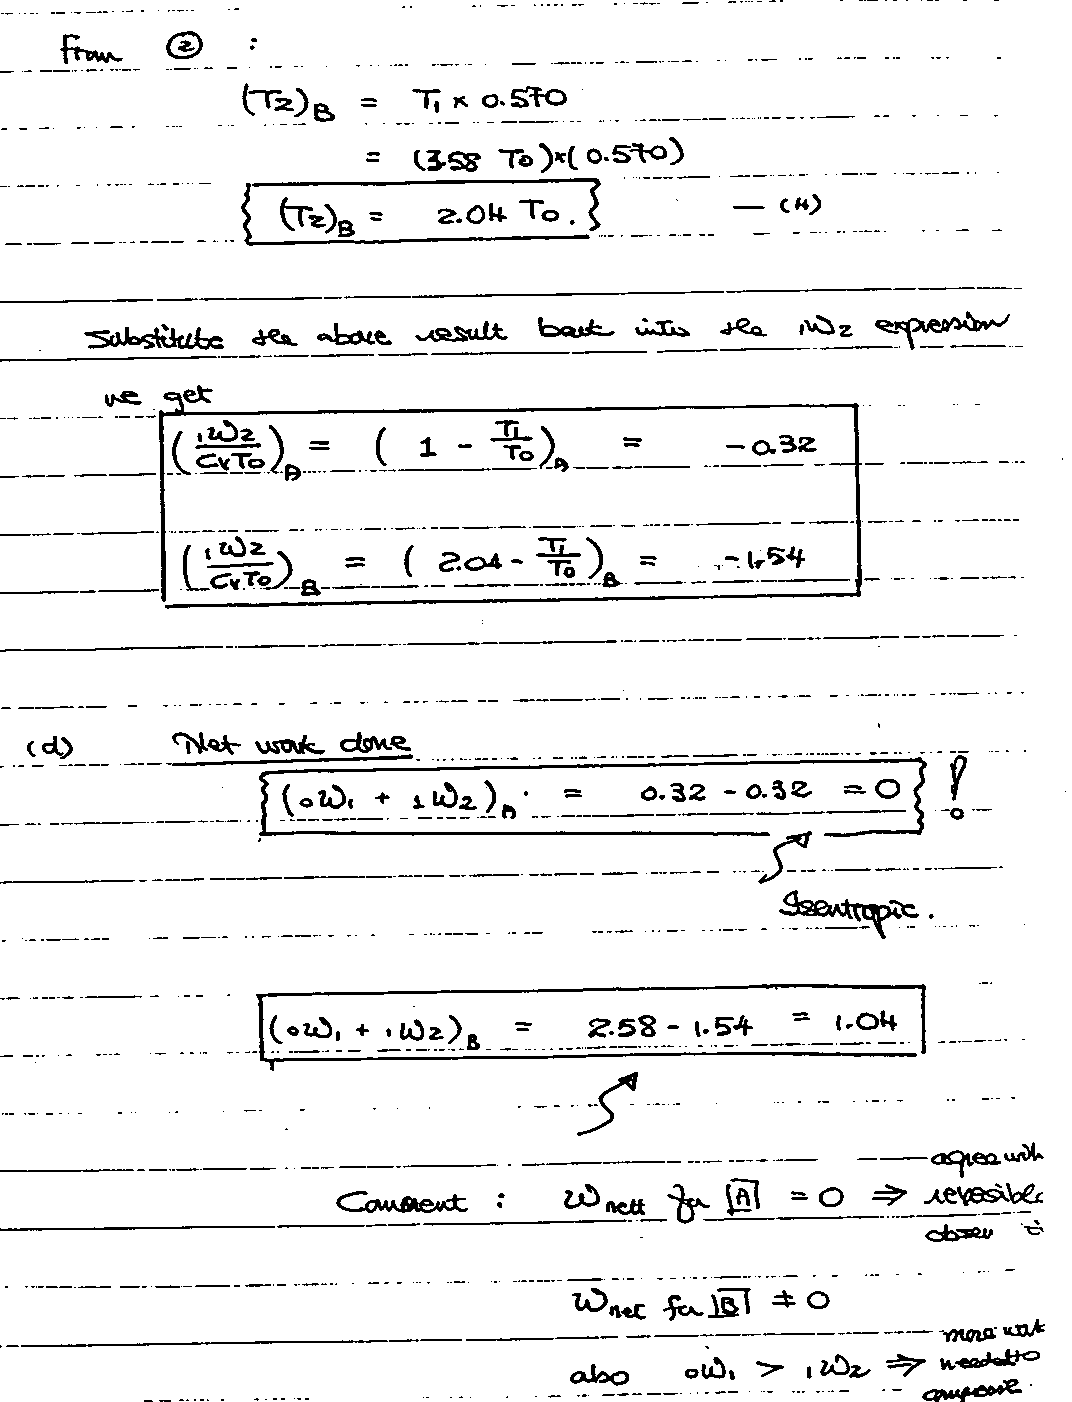 From ② :
(T2)B = T1 × 0.570
= (3.58 T0)×(0.570)
(T2)B = 2.04 T0. — (4)
Substitute the above result back into the 1W2 expression
we get
(1W2/CvT0)A = (1 - T1/T0)A = -0.32
(1W2/CvT0)B = (2.04 - T1/T0)B = -1.54
(d) Net work done
(0W1 + 1W2)A = 0.32 - 0.32 = 0 !
Isentropic.
(0W1 + 1W2)B = 2.58 - 1.54 = 1.04
agree with
Comment : Wnett for A = 0 ⇒ reversible
Wnet for B ≠ 0
more work
also 0W1 > 1W2 ⇒ needed to
compress.